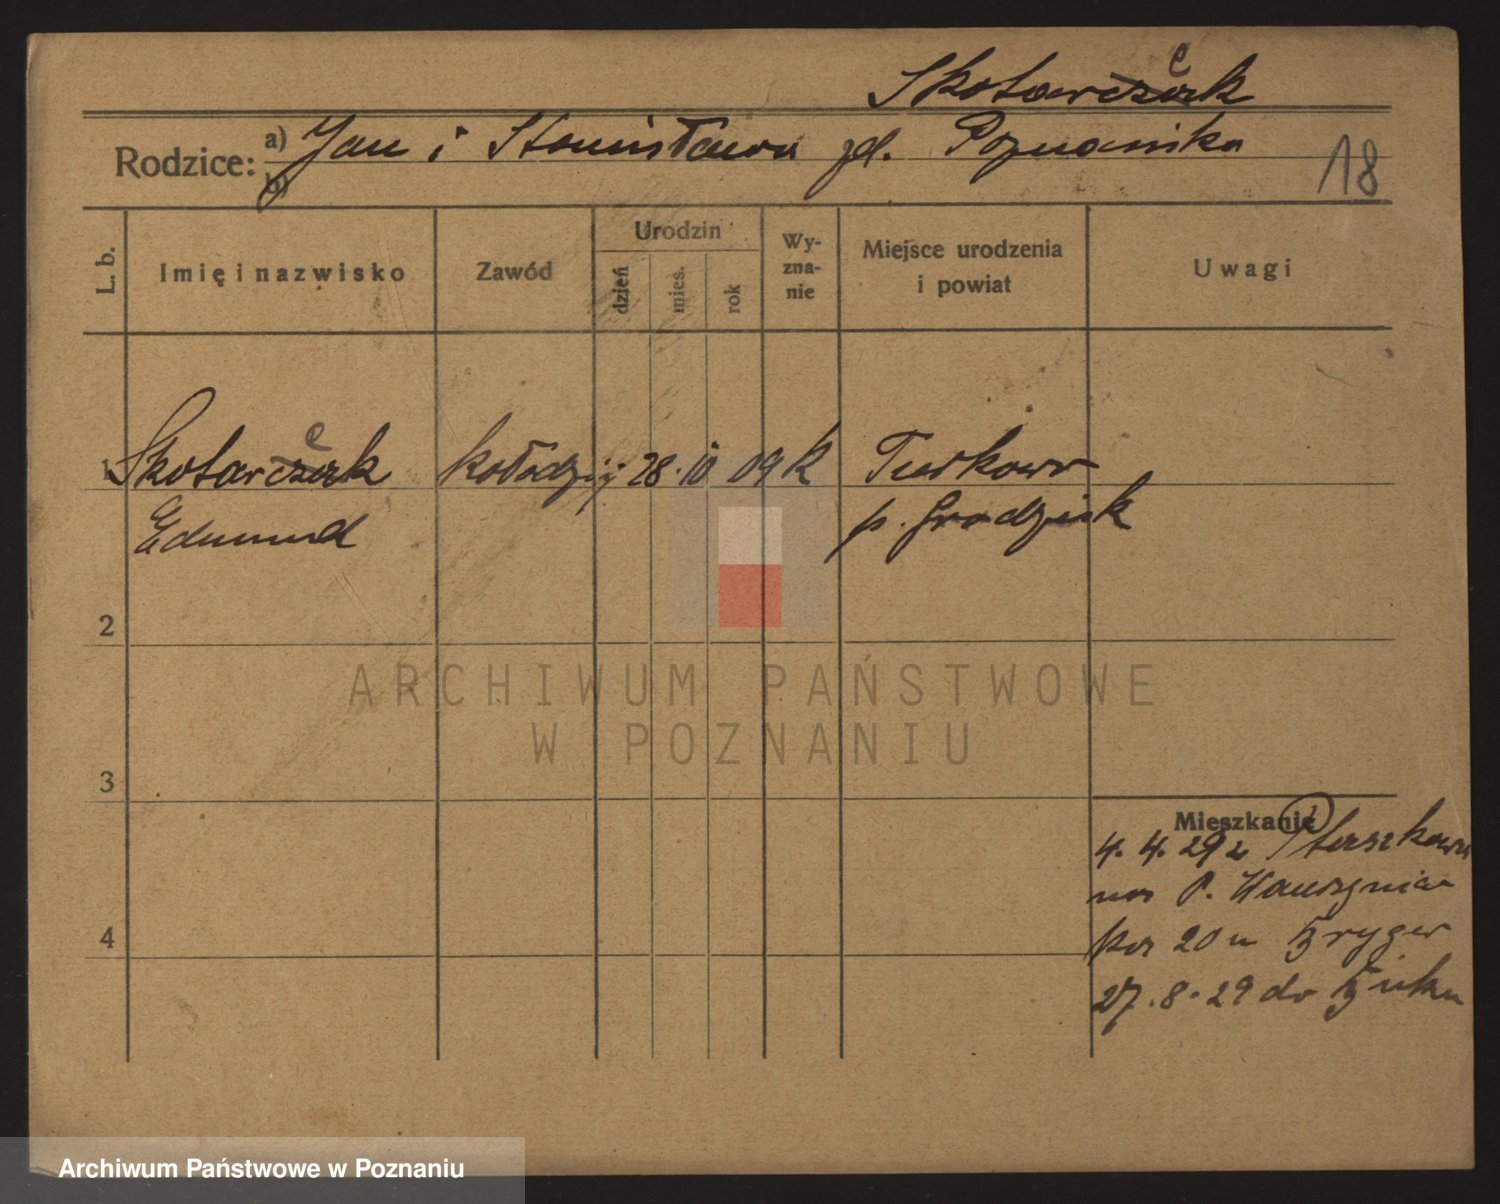 Skotarczak
Rodzice: a) Jan i Stanisława zd. Poznanska 18
b)
L. b. Imię i nazwisko Zawód Urodzin dzień mies. rok Wyznanie Miejsce urodzenia i powiat Uwagi
1 Skotarczak kołodziij 28. 10 09 K Turkowo
Edmund p. Grodzisk
2
3
4
Mieszkanie
4. 4. 29 z Ptaszkowa
na P.
20 u
27. 8. 29 do Buku
ARCHIWUM PAŃSTWOWE
W POZNANIU
Archiwum Państwowe w Poznaniu